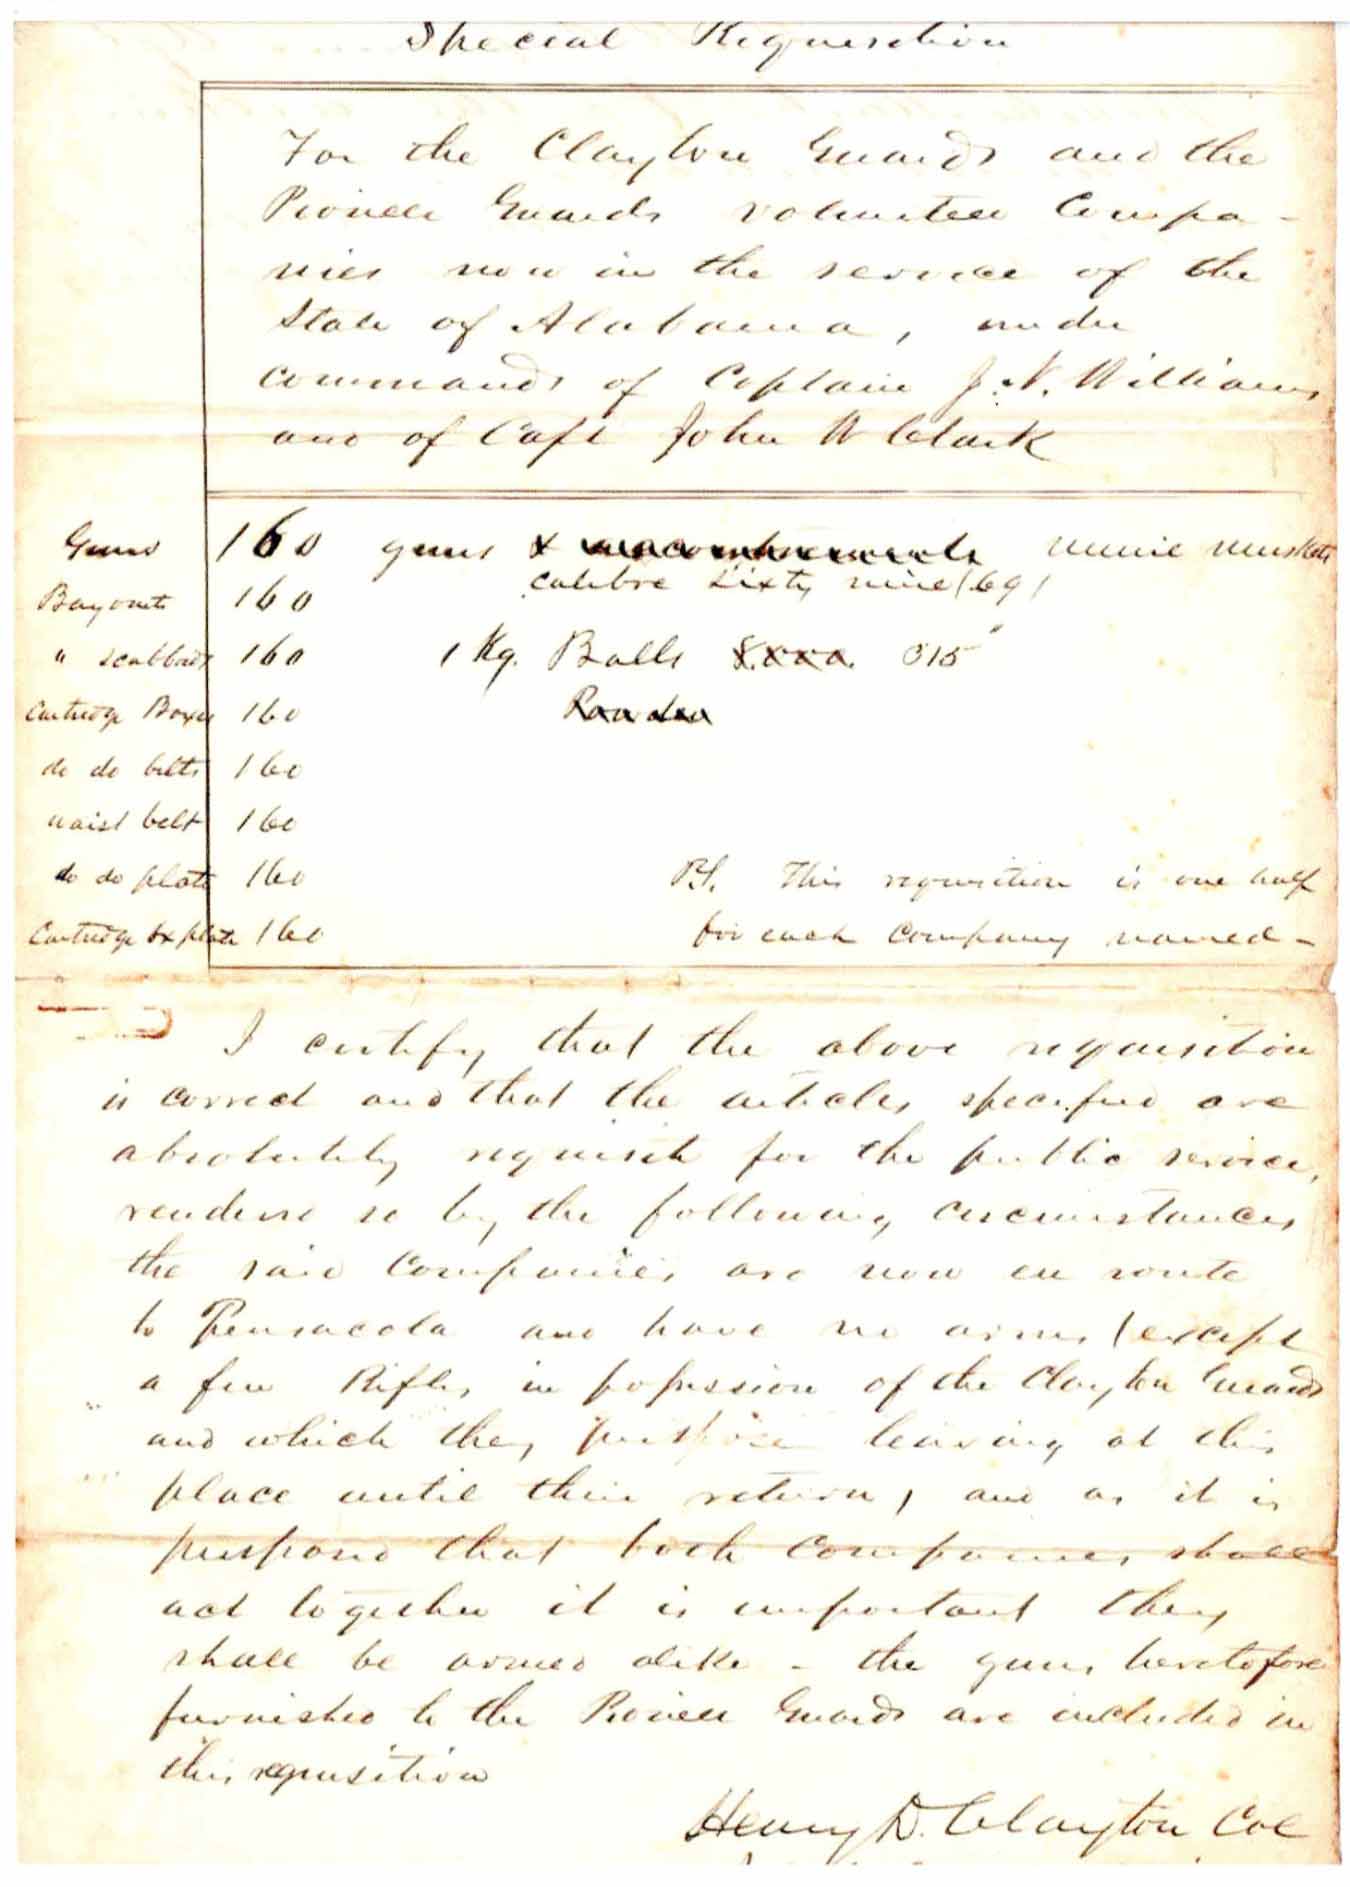 Special Requisition
For the Clayton Guards and the
Pioneer Guards volunteer Compa-
nies now in the service of the
State of Alabama, under
commands of Captain J. N. Williams
and of Capt John W Clark
Guns 160 guns & minie muskets
calibre Sixty nine (69)
Bayonets 160
" scabbards 160 1 Kg. Balls 315
Cartridge Boxes 160
do do belts 160
waist belt 160
do do plate 160 PS. This requisition is one half
Cartridge bx plate 160 for each company named -
I certify that the above requisition
is correct and that the articles specified are
absolutely requisite for the public service,
rendered so by the following circumstances
the said Companies are now en route
to Pensacola and have no arms (except
a few Rifles in possession of the Clayton Guards
and which they purpose leaving at this
place until their return, and as it is
purposed that both companies shall
act together it is important they
shall be armed alike - the guns heretofore
furnished to the Pioneer Guards are included in
this requisition
Henry D. Clayton Col